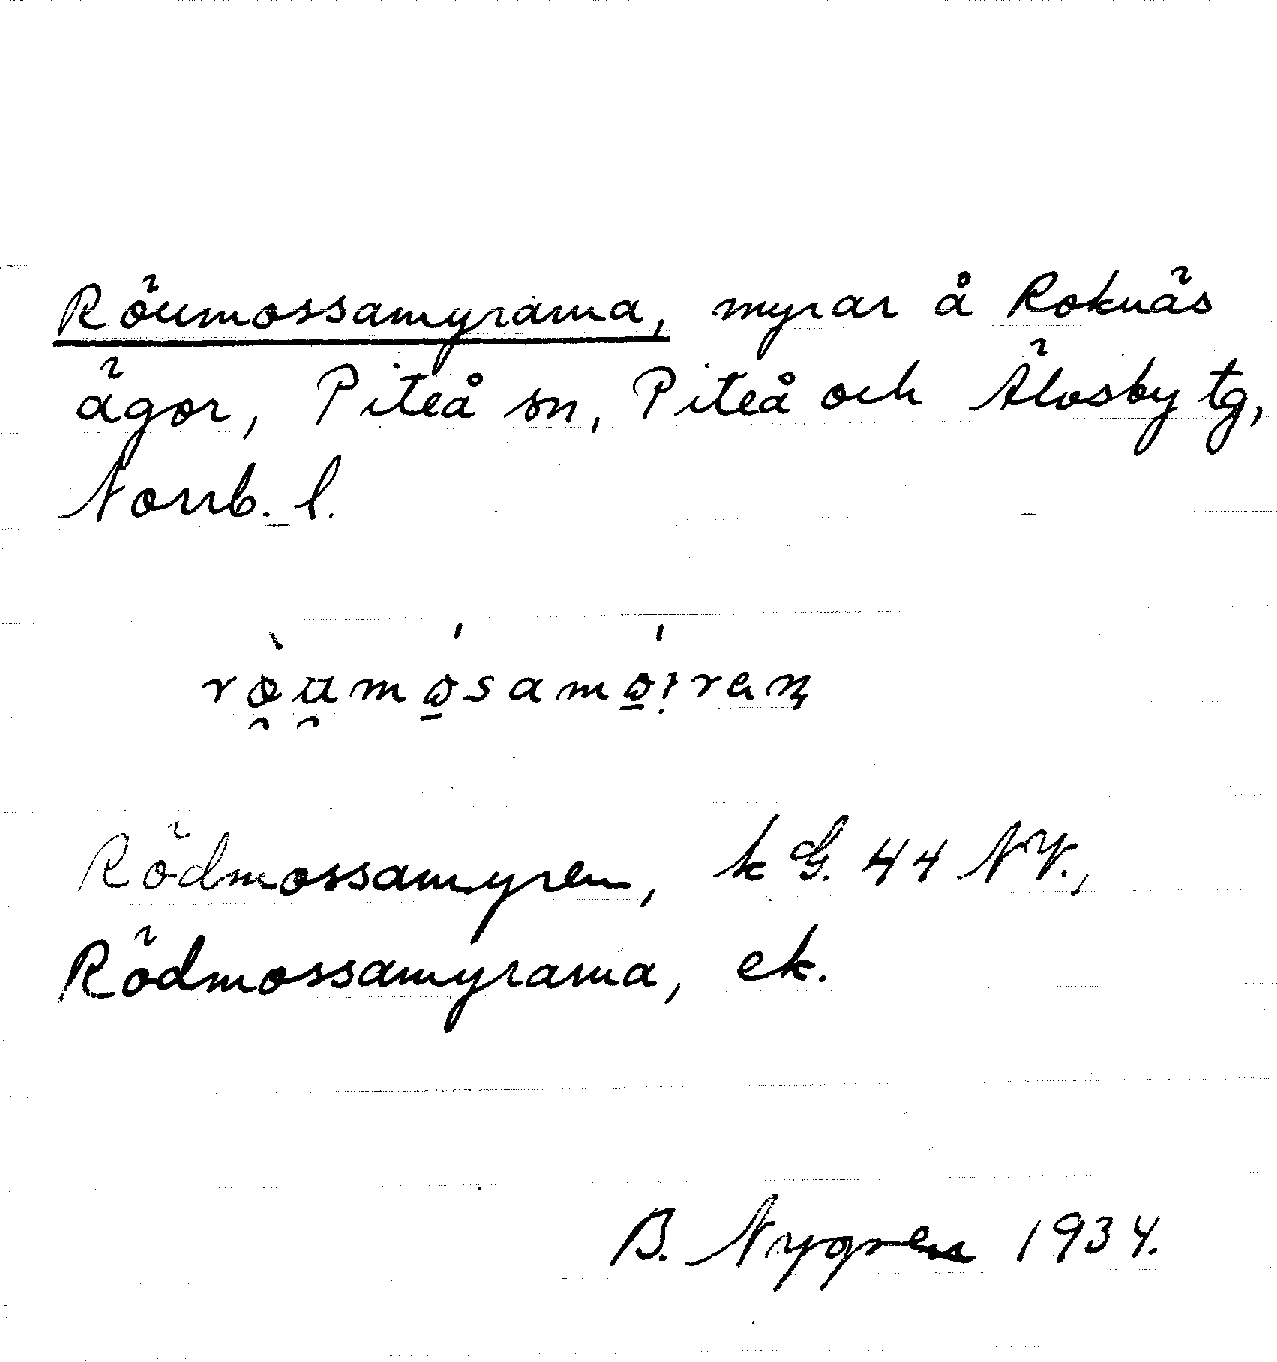 Röumossamyrarna, myrar å Roknäs
ägor, Piteå sn, Piteå och Älvsby tg,
Norrb. l.
rò̯u̯mó̱samó̱ɩraṇ
Rödmossamyren, k G. 44 NV.,
Rödmossamyrarna, ek.
B. Nygren 1934.